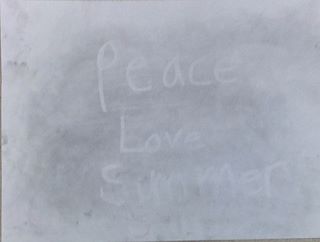 Peace
Love
Summer